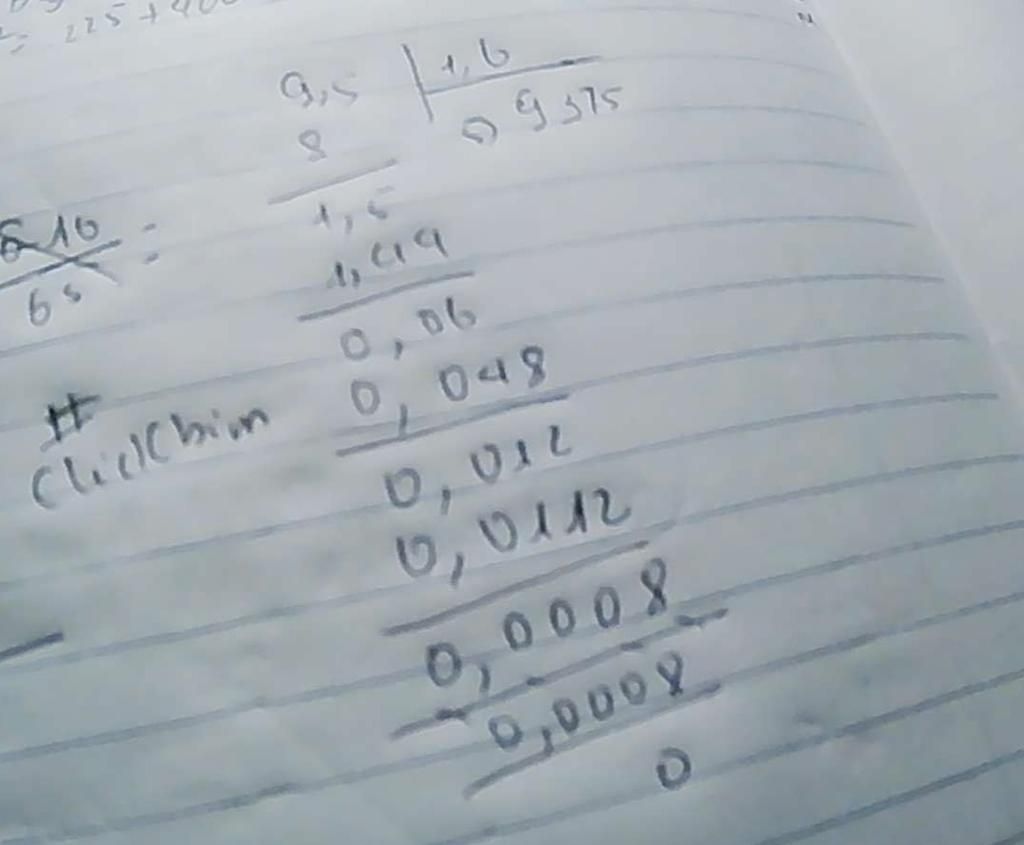 = 225 + 400
9,5 | 1,6
8
5,9375
1,5
1,44
0,06
0,048
0,012
0,0112
0,0008
0,0008
0
16
65
=
#
ClickChim